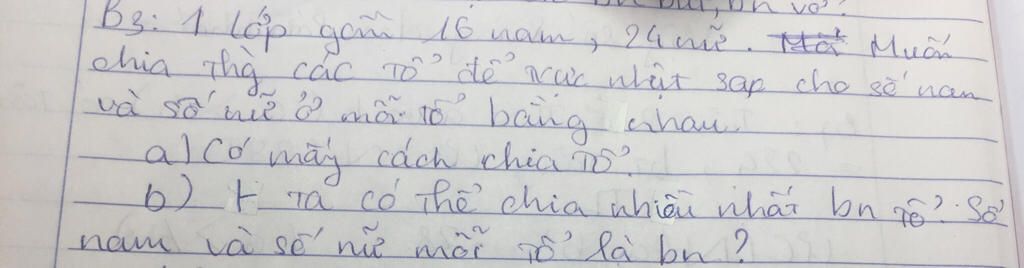 bn vở?
B3: 1 lớp gồm 16 nam, 24 nữ. Muốn
chia thg các tổ để trực nhật sap cho số nam
và số nữ ở mỗi tổ bằng nhau.
a) Có mấy cách chia tổ?
b) t ta có thể chia nhiều nhất bn tổ? Số
nam và số nữ mỗi tổ là bn?